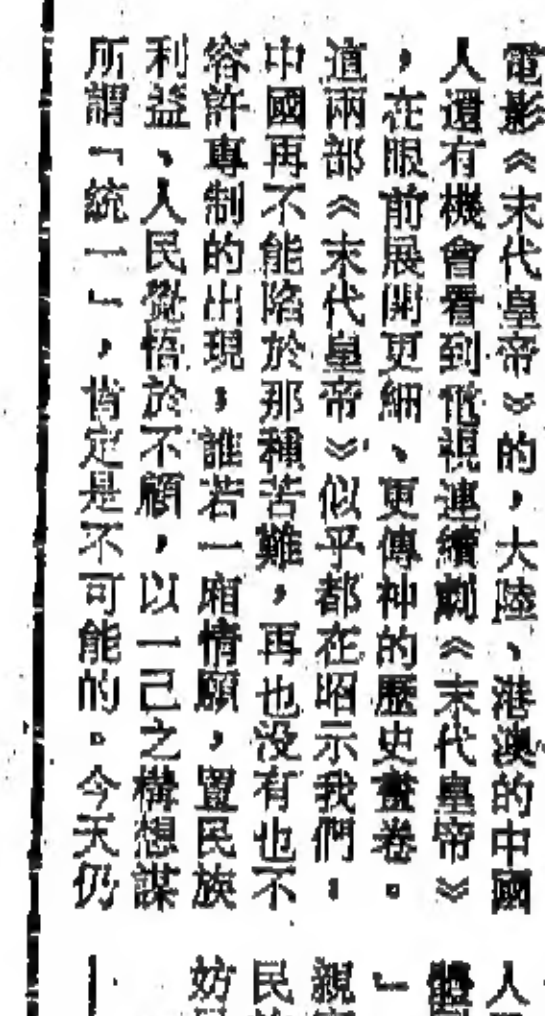 電影《末代皇帝》的，大陸、港澳的中國
人還有機會看到電視連續劇《末代皇帝》
，在眼前展開更細、更傳神的歷史畫卷。
這兩部《末代皇帝》似乎都在昭示我們，
中國再不能陷於那種苦難，再也没有也不
容許專制的出現，誰若一廂情願，置民族
利益、人民覺悟於不顧，以一己之構想謀
所謂「統一」，肯定是不可能的。今天仍
人
體
」
親
民
妨